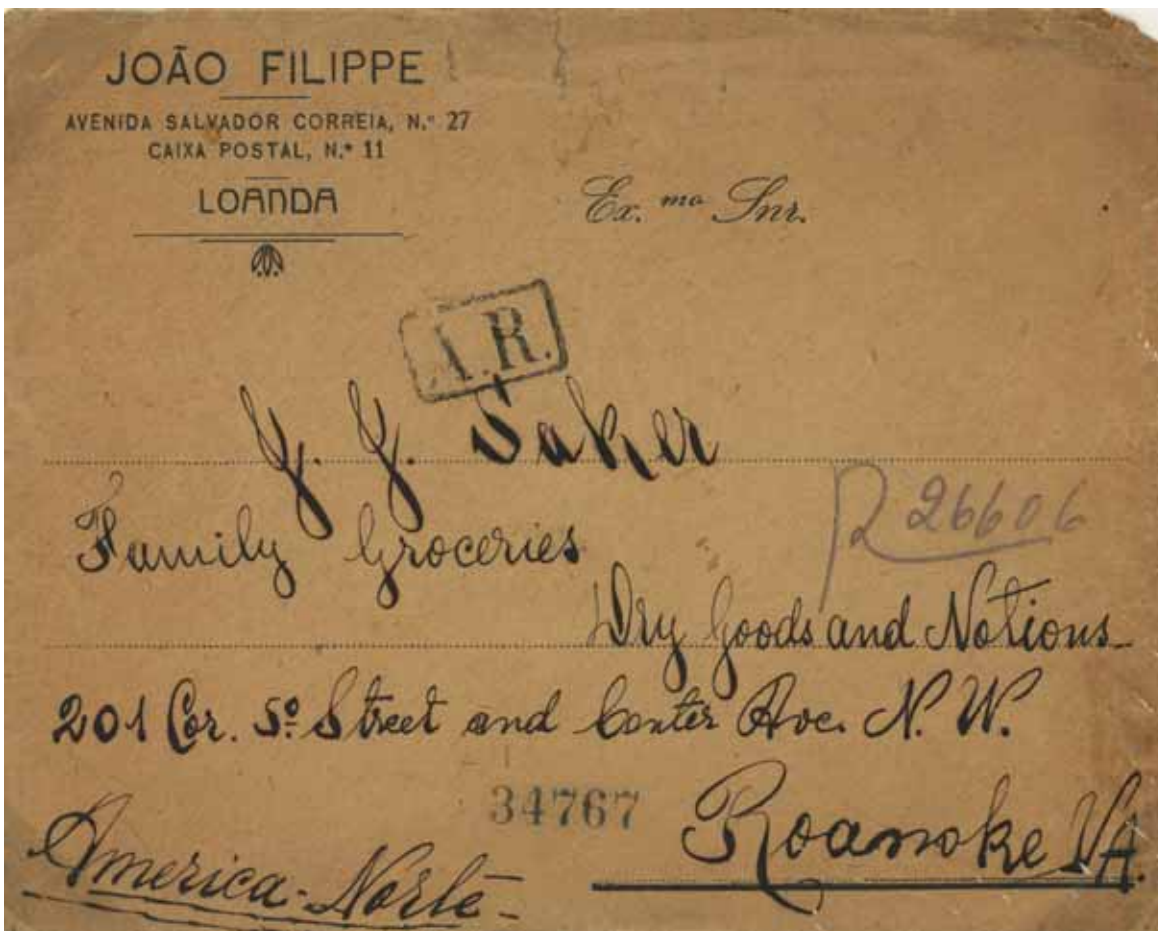 JOÃO FILIPPE
AVENIDA SALVADOR CORREIA, N.º 27
CAIXA POSTAL, N.º 11
LOANDA
Ex.mo Snr.
A.R.
J. J. Saker
R 26606
Family Groceries
Dry Goods and Notions
201 Cor. 5º Street and Center Ave. N. W.
34767
Roanoke VA.
America-Norte-